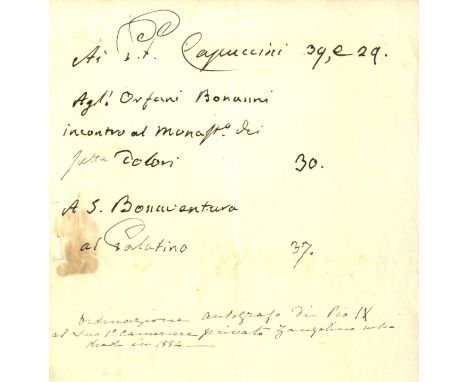 Ai P.P. Capuccini 39, e 29.
Agl'i Orfani Bonanni
incontro al Monast.o dei
Sette Dolori 30.
A S. Bonaventura
al Palatino 37.
Ordinazione autografo di Pio IX
al Suo 1o Cameriere privato Zangolino
diede in 1854